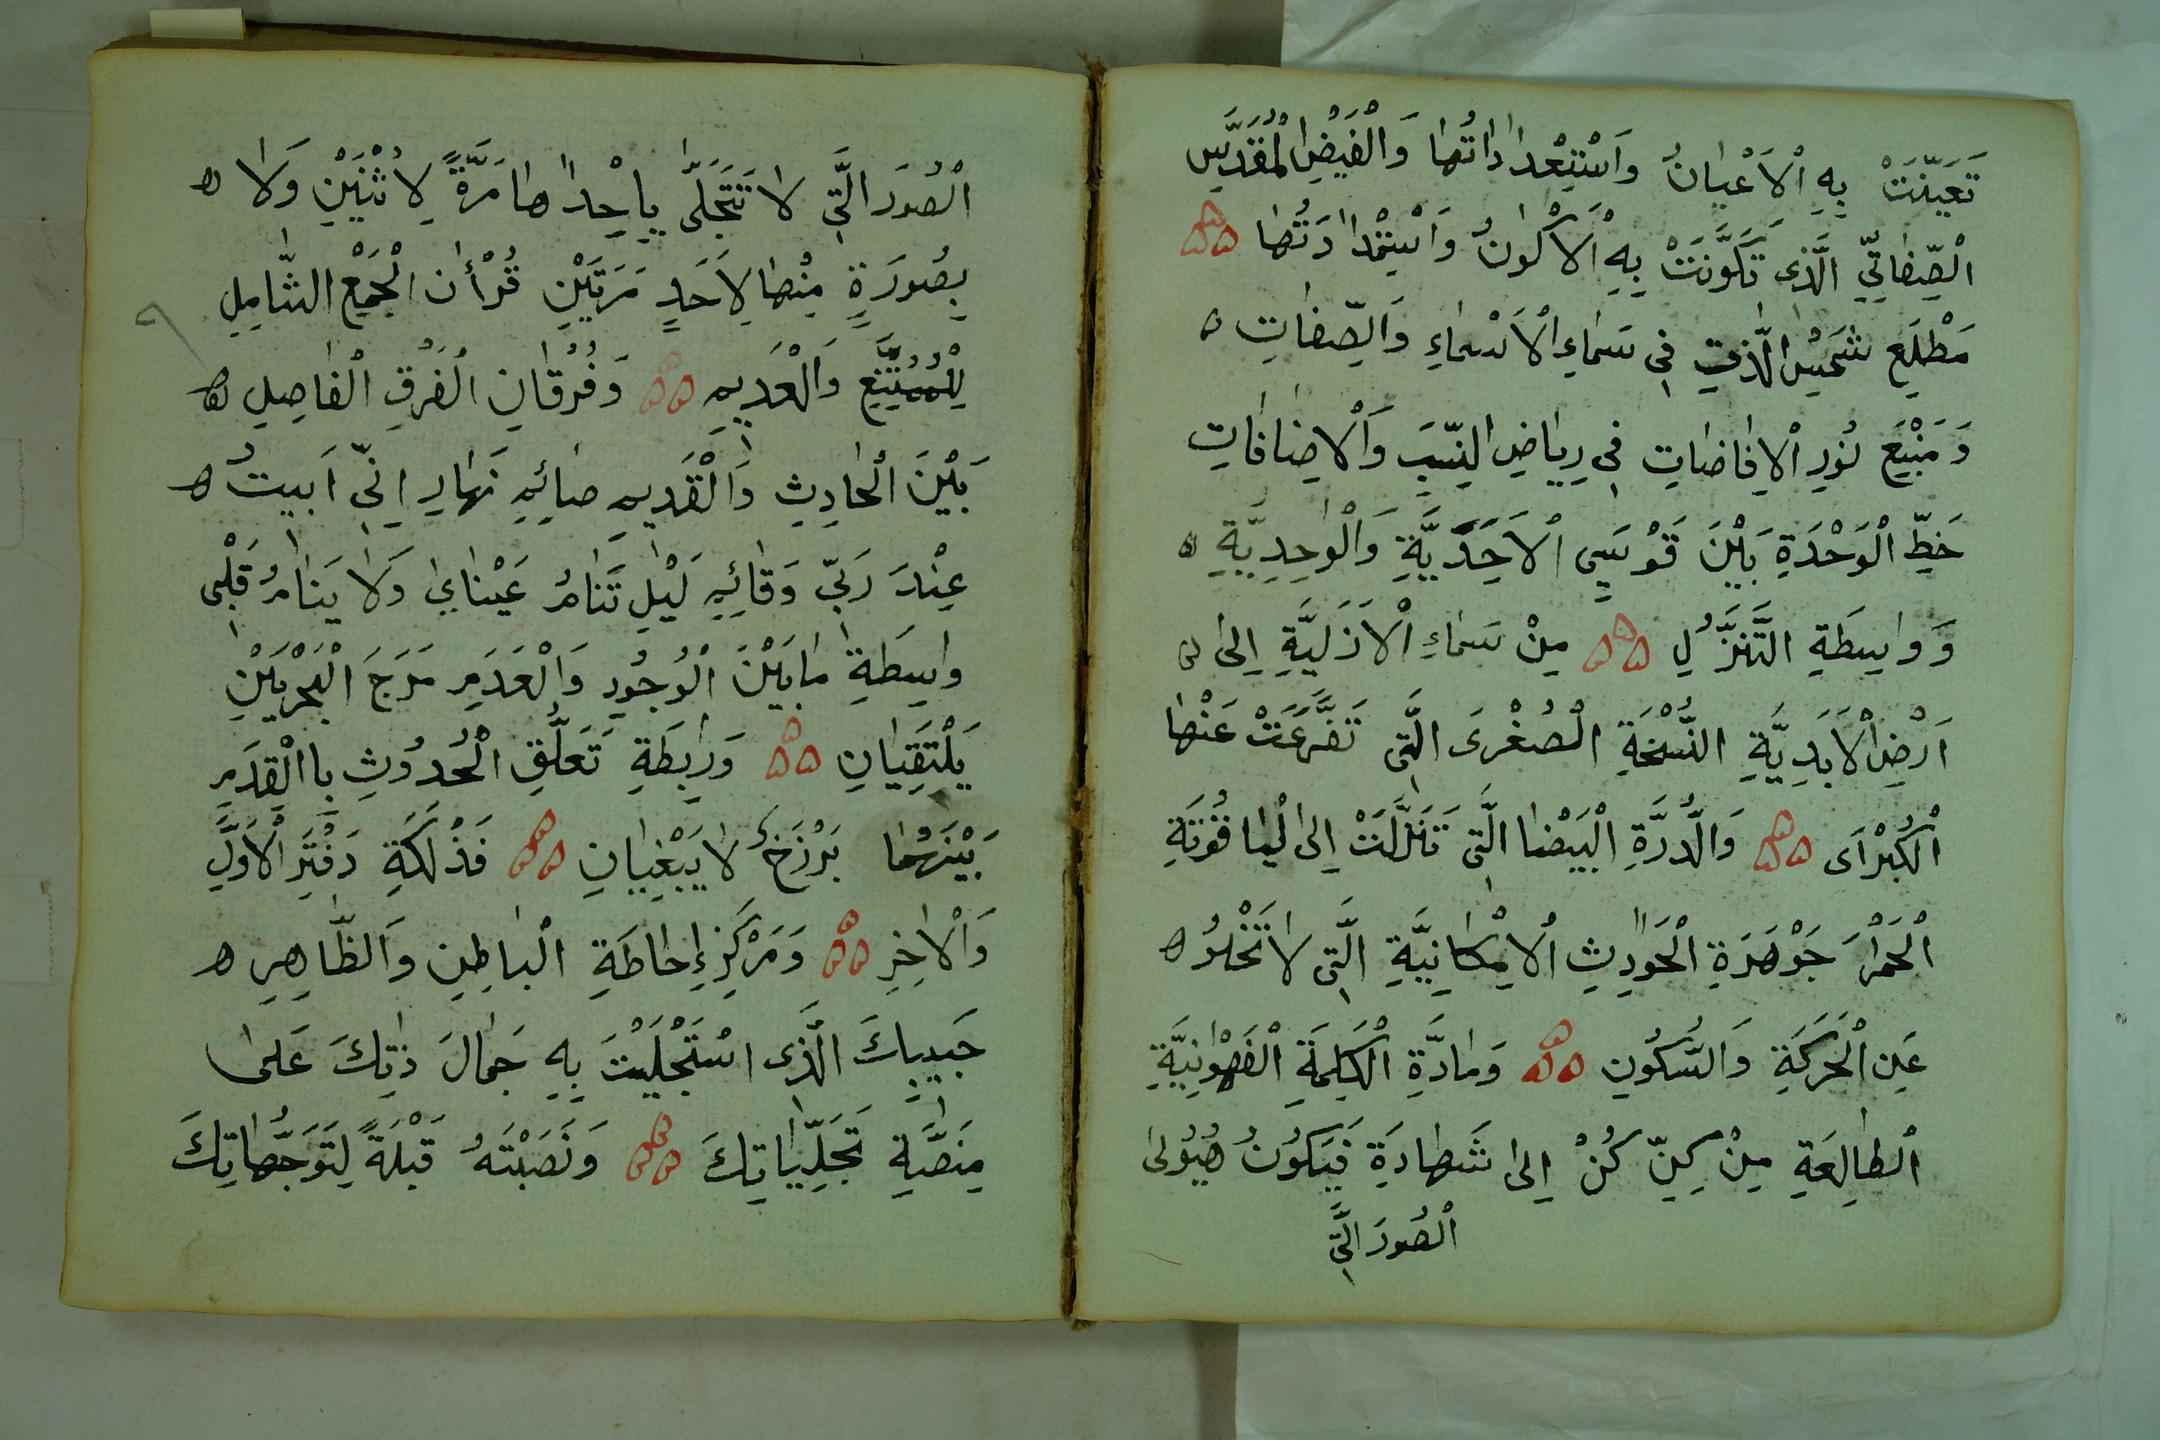 تَعَيَّنَتْ بِهِ اْلاَعْيَانُ وَاسْتِعْدَادَاتُهَا وَالْفَيْضِ الْمُقَدَّسِ
الْصِّفَاتِيِّ الَّذِى تَكَوَّنَتْ بِهِ اْلاَكْوَانُ وَاسْتِمْدَادَتُهَا
مَطْلَعِ شَمْسِ الذَّاتِ فِى سَمَاءِ اْلاَسْمَاءِ وَالصِّفَاتِ ه
وَمَنْبَعِ نُورِ اْلاِفَاضَاتِ فِى رِيَاضِ النِّسَبِ وَاْلاِضَافَاتِ
خَطِّ الْوَحْدَةِ بَيْنَ قَوْسَىِ اْلاَحَدِيَّةِ وَالْوَاحِدِيَّةِ ه
وَوَاسِطَةِ التَّنَزُّلِ مِنْ سَمَاءِ اْلاَزَلِيَّةِ اِلَى
اَرْضِ اْلاَبَدِيَّةِ النُّسْخَةِ الْصُغْرَى الَّتِى تَفَرَّعَتْ عَنْهَا
اْلكُبْرَاَى وَالدُّرَّةِ الْبَيْضَا الَّتِى تَنَزَّلَتْ اِلَى الْيَاقُوتَةِ
الْحَمْرَا جَوْهَرَةِ الْحَوَادِثِ اْلاِمْكَانِيَّةِ الَّتِى لاَ تَخْلُو ه
عَنِ الْحَرَكَةِ وَالسُّكُونِ وَمَادَّةِ الْكَلِمَةِ الْفَهْوَانِيَّةِ
الْطَالِعَةِ مِنْ كِنِّ كُنْ اِلَى شَهَادَةِ فَيَكُونُ هَيُولَى
الْصُوَرَ الَّتِى
الْصُوَرَ الَّتِى لاَ تَتَجَلَّى بِاِحْدَاهَا مَرَّةً لِاثْنَيْنِ وَلاَ ه
بِصُورَةٍ مِنْهَا لِاَحَدٍ مَرَّتَيْنِ قُرْأَنِ الْجَمْعِ الشَّامِلِ
لِلْمُمْتَنِعِ وَالْعَدِيمِ وَفُرْقَانِ الْفَرْقِ الْفَاصِلِ ه
بَيْنَ الْحَادِثِ وَالْقَدِيمِ صَائِمِ نَهَارِ اِنِّى اَبِيتُ ه
عِنْدَ رَبِّى وَقَائِمِ لَيْلِ تَنَامُ عَيْنَاىَ وَلاَ يَنَامُ قَلْبِى
وَاسِطَةِ مَا بَيْنَ الْوُجُودِ وَالْعَدَمِ مَرَجَ الْبَحْرَيْنِ
يَلْتَقِيَانِ وَرَابِطَةِ تَعَلُّقِ الْحُدُوثِ بِاالْقِدَمِ
بَيْنَهُمَا بَرْزَخٌ لاَ يَبْغِيَانِ فَذْلَكَةِ دَفْتَرِ الْاَوَّلِ
وَاْلاَخِرِ وَمَرْكَزِ اِحَاطَةِ الْبَاطِنِ وَالظَّاهِرِ ه
حَبِيبِكَ الَّذِى اسْتَجْلَيْتَ بِهِ جَمَالَ ذَاتِكَ عَلَى
مِنَصَّةِ تَجَلِّيَاتِكَ وَنَصَبْتَهُ قِبْلَةً لِتَوَجُّهَاتِكَ